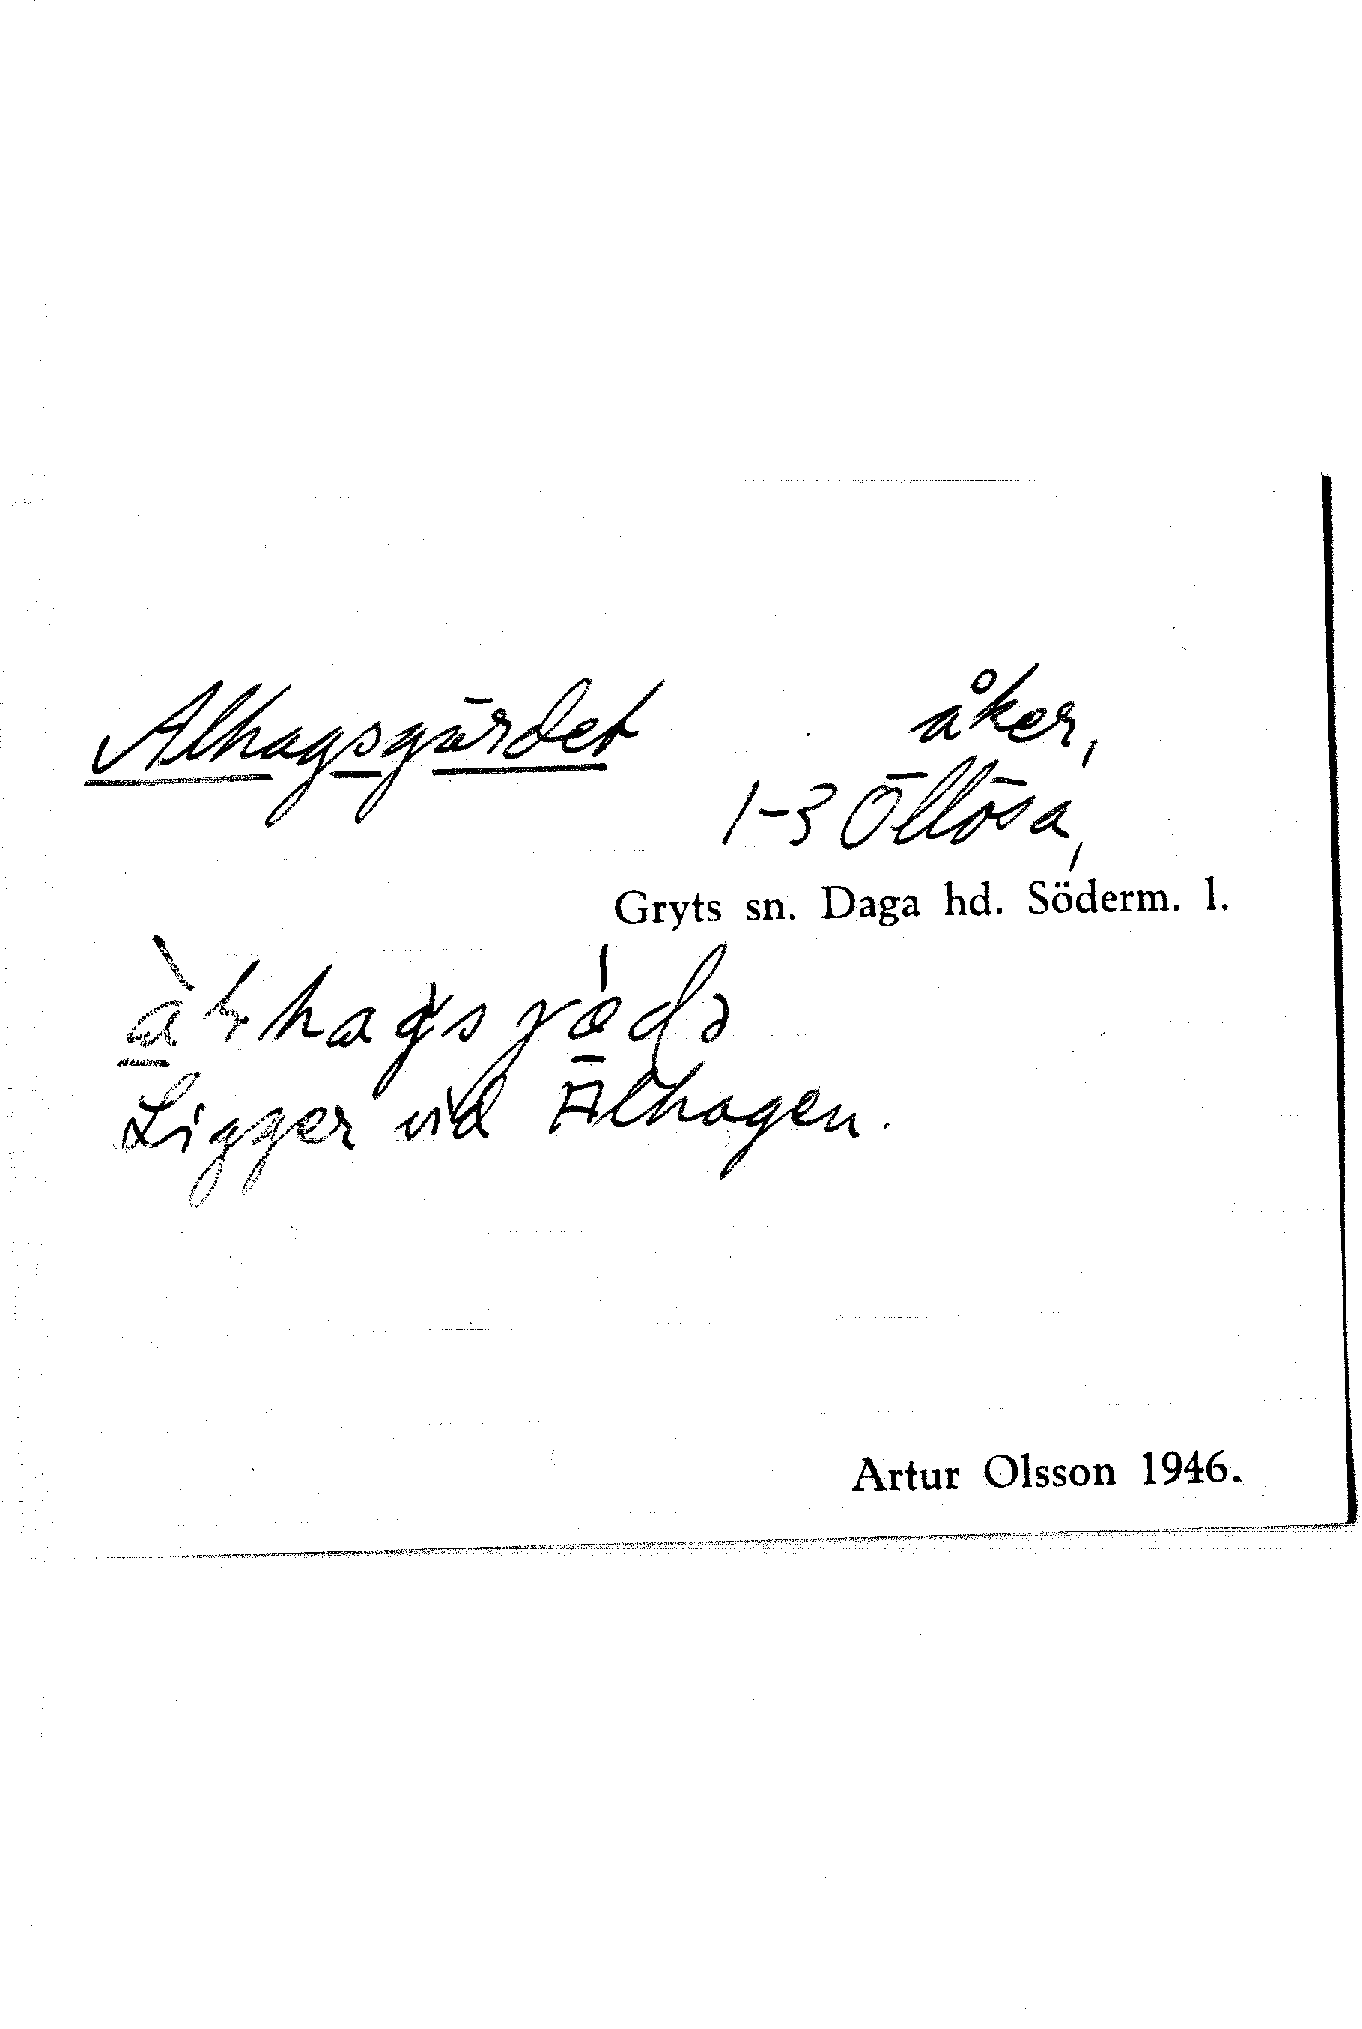 Alhagsgärdet åker,
1-3 Öllösa,
Gryts sn. Daga hd. Söderm. l.
Ligger vid Alhagen.
Artur Olsson 1946.